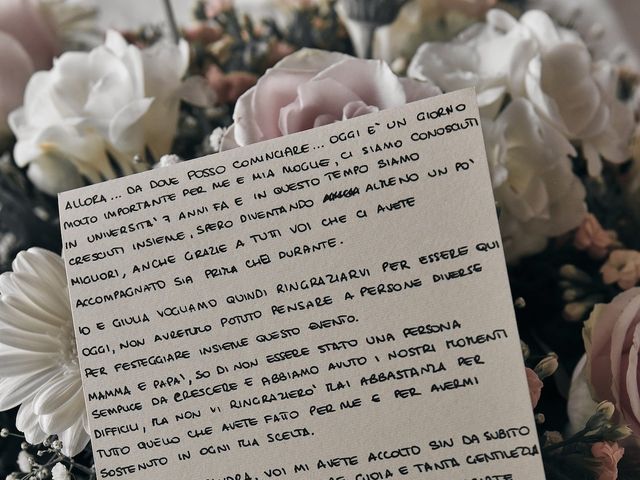 ALLORA... DA DOVE POSSO COMINCIARE... OGGI E' UN GIORNO
MOLTO IMPORTANTE PER ME E MIA MOGLIE, CI SIAMO CONOSCIUTI
IN UNIVERSITA' 7 ANNI FA E IN QUESTO TEMPO SIAMO
CRESCIUTI INSIEME, SPERO DIVENTANDO ALMENO UN PO'
MIGLIORI, ANCHE GRAZIE A TUTTI VOI CHE CI AVETE
ACCOMPAGNATO SIA PRIMA CHE DURANTE.
IO E GIULIA VOGLIAMO QUINDI RINGRAZIARVI PER ESSERE QUI
OGGI, NON AVREMMO POTUTO PENSARE A PERSONE DIVERSE
PER FESTEGGIARE INSIEME QUESTO EVENTO.
MAMMA E PAPA', SO DI NON ESSERE STATO UNA PERSONA
SEMPLICE DA CRESCERE E ABBIAMO AVUTO I NOSTRI MOMENTI
DIFFICILI, MA NON VI RINGRAZIERO' MAI ABBASTANZA PER
TUTTO QUELLO CHE AVETE FATTO PER ME E PER AVERMI
SOSTENUTO IN OGNI MIA SCELTA.
VOI MI AVETE ACCOLTO SIN DA SUBITO
GIOIA E TANTA GENTILEZZA